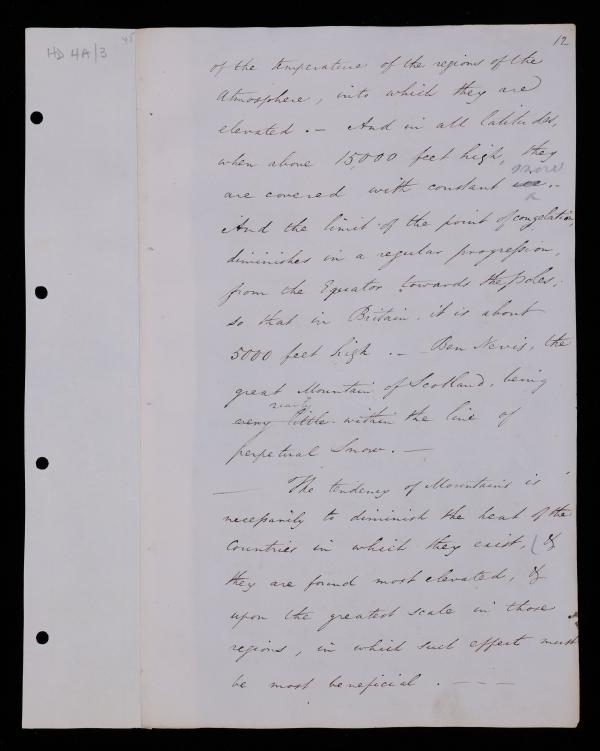 HD 4A/3
45
12
of the temperature of the regions of the
Atmosphere, into which they are
elevated. — And in all latitudes,
when above 15,000 feet high, they
snow
are covered with constant ice. -
And the limit of the point of congelation,
diminishes in a regular progression,
from the Equator towards the poles;
so that in Britain it is about
5000 feet high. — Ben Nevis, the
great Mountain of Scotland, being
nearly
very little within the line of
perpetual Snow. —
— The tendency of Mountains is
necessarily to diminish the heat of the
Countries in which they exist, (&
they are found most elevated, &
upon the greatest scale in those
regions, in which such effect must
be most beneficial. - - -